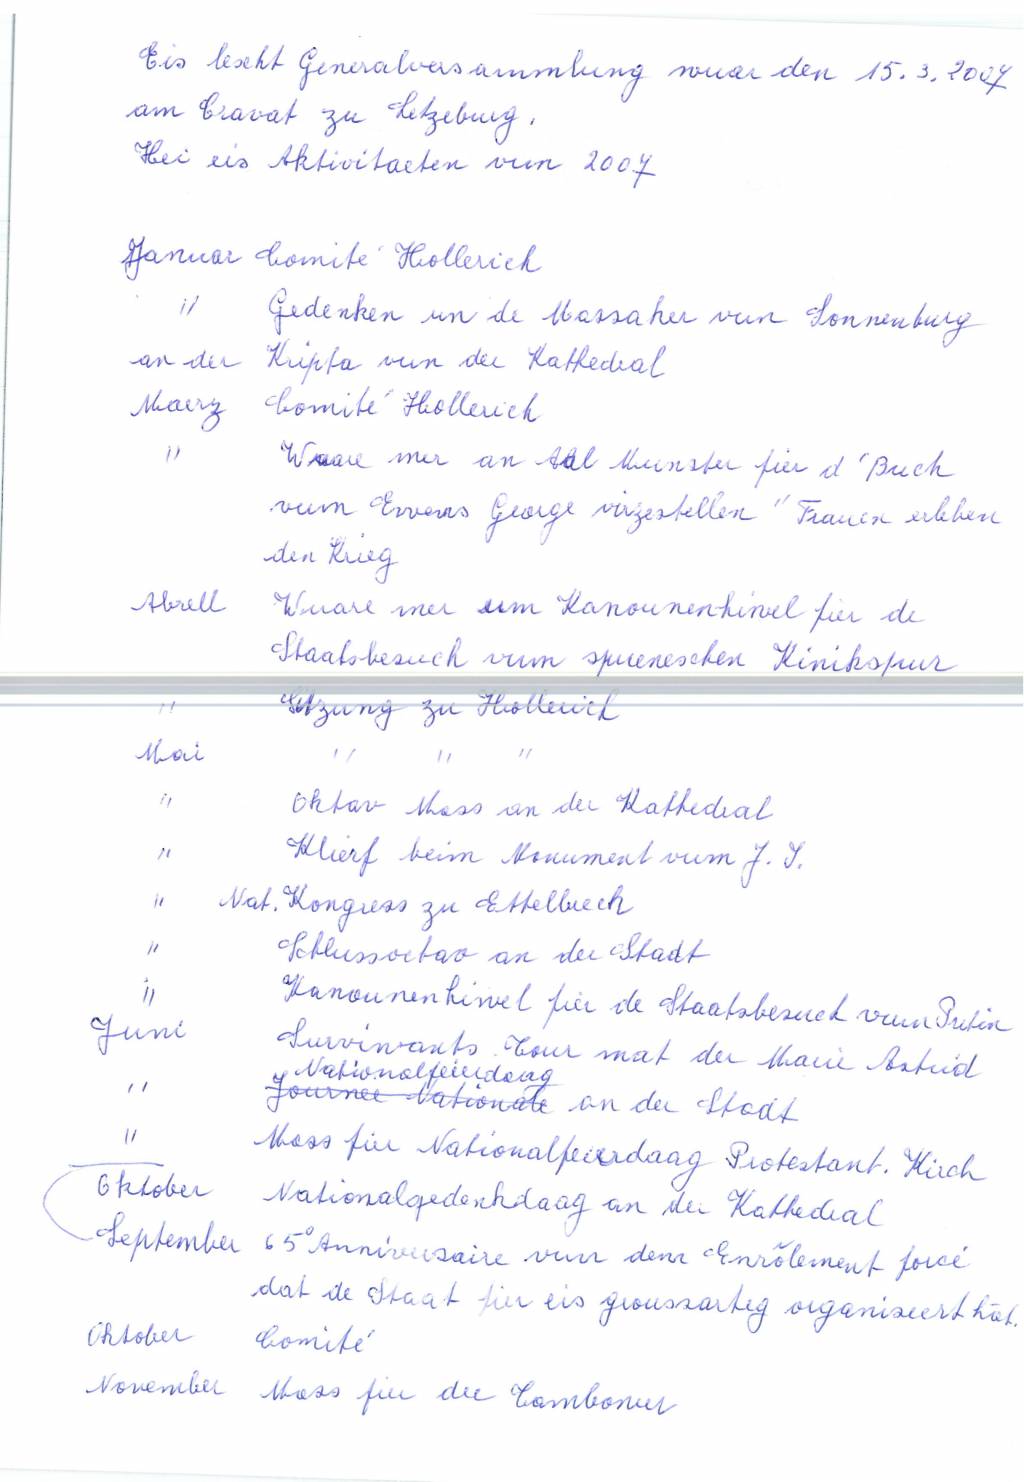 Eis lescht Generalversammlung wuar den 15.3.2007
am Cravat zu Letzeburg.
Hei eis Aktivitaeten vun 2007
Januar Comité Hollerich
" Gedenken un de Massaker vun Sonnenburg
an der Kripta vun der Kathedral
Maerz Comité Hollerich
" Waare mer an Abl Munster fier d'Buch
vum Evvens George virzestellen "Frauen erleben
den Krieg
Abrell Wuare mer um Kanounenhiwel fier de
Staatsbesuch vum spueneschen Kinikspur
" Sitzung zu Hollerich
Mai " " "
" Oktav Mass an der Kathedral
" Klierf beim Monument vum J. S.
" Nat. Kongress zu Ettelbreck
" Schlussoctav an der Stadt
" Kanounenhiwel fier de Staatsbesuch vum Putin
Juni Survivants Tour mat der Marie Astrid
Nationalfeierdaag
" Journee Nationale an der Stadt
" Mass fier Nationalfeierdaag Protestant. Kirch
Oktober Nationalgedenkdaag an der Kathedral
September 65° Anniversaire vun dem Enrôlement forcé
dat de Staat fier eis groussarteg organiseert hät.
Oktober Comité
November Mass fier die